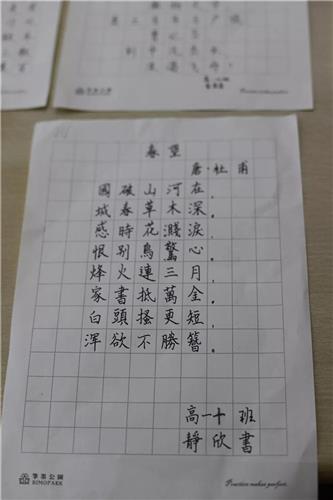 春望
唐·杜甫
國破山河在，
城春草木深。
感時花濺淚，
恨別鳥驚心。
烽火連三月，
家書抵萬全，
白頭搔更短，
渾欲不勝簪。
高一十班
靜欣書
筆墨公園
BIMOPARK
Practice makes perfect.